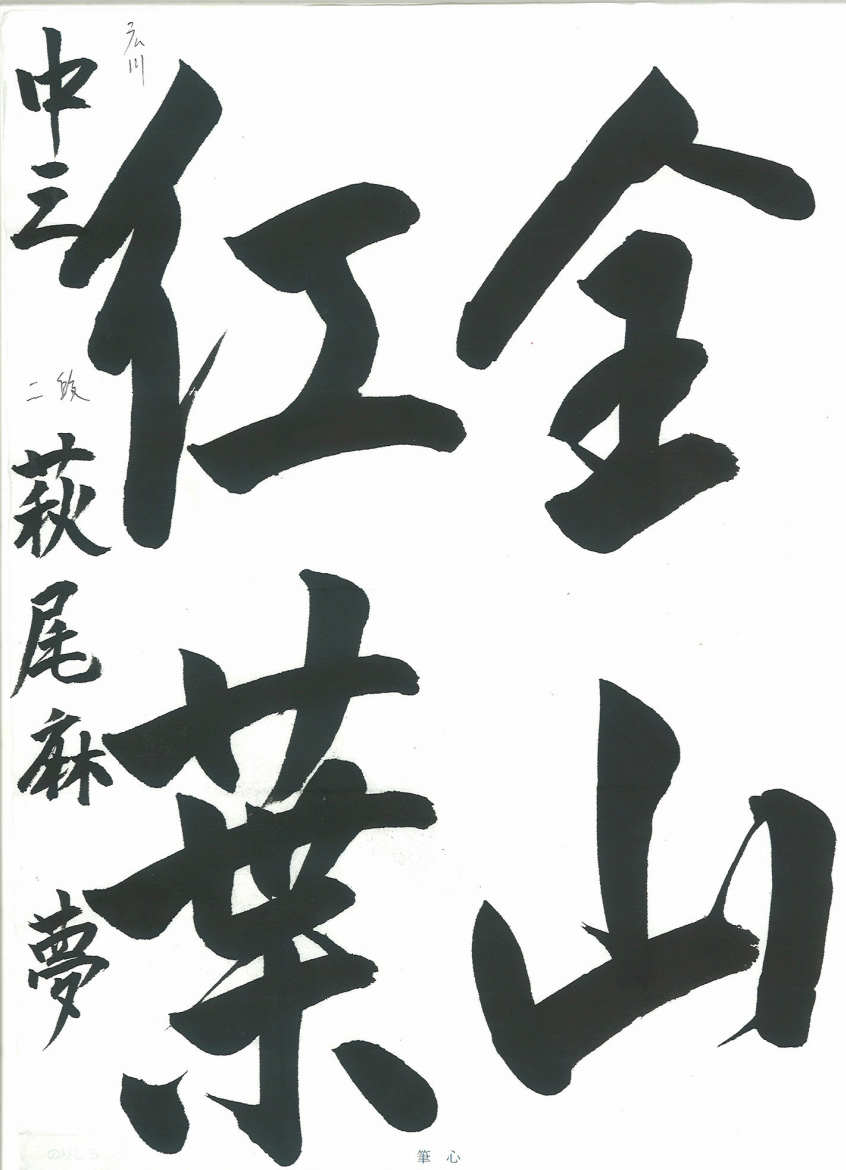 全山
紅葉
広川
中三
二段
萩尾麻夢
筆心
のりしろ